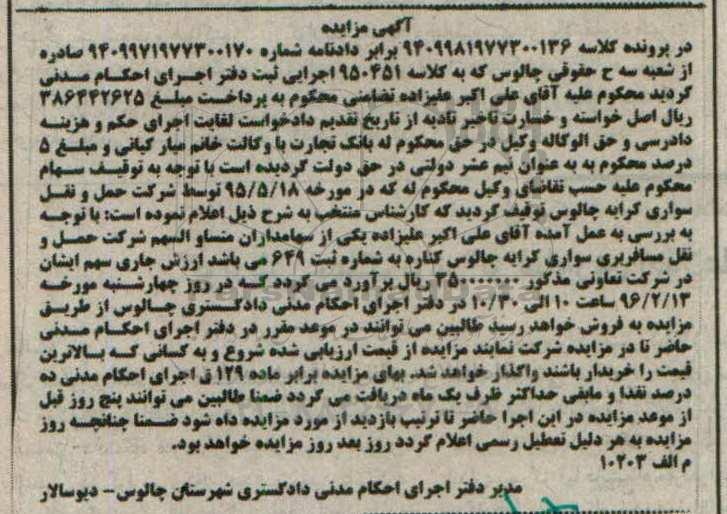 آگهی مزایده
در پرونده کلاسه ۹۴۰۹۹۸۱۹۷۷۳۰۰۱۳۶ برابر دادنامه شماره ۹۴۰۹۹۷۱۹۷۷۳۰۰۱۷۰ صادره
از شعبه سه ح حقوقی چالوس که به کلاسه ۹۵۰۴۵۱ اجرایی ثبت دفتر اجرای احکام مدنی
گردید محکوم علیه آقای علی اکبر علیزاده تضامنی محکوم به پرداخت مبلغ ۳۸۶۴۴۲۶۲۵
ریال اصل خواسته و خسارت تاخیر تادیه از تاریخ تقدیم دادخواست لغایت اجرای حکم و هزینه
دادرسی و حق الوکاله وکیل در حق محکوم له بانک تجارت با وکالت خانم میار کیانی و مبلغ ۵
درصد محکوم به به عنوان نیم عشر دولتی در حق دولت گردیده است با توجه به توقیف سهام
محکوم علیه حسب تقاضای وکیل محکوم له که در مورخه ۹۵/۵/۱۸ توسط شرکت حمل و نقل
سواری کرایه چالوس توقیف گردید که کارشناس منتخب به شرح ذیل اعلام نموده است: با توجه
به بررسی به عمل آمده آقای علی اکبر علیزاده یکی از سهامداران متساو السهم شرکت حمل و
نقل مسافربری سواری کرایه چالوس کناره به شماره ثبت ۶۴۹ می باشد ارزش جاری سهم ایشان
در شرکت تعاونی مذکور ریال برآورد می گردد که در روز چهارشنبه مورخه
۹۶/۲/۱۳ ساعت ۱۰ الی ۱۰/۳۰ در دفتر اجرای احکام مدنی دادگستری چالوس از طریق
مزایده به فروش خواهد رسید طالبین می توانند در موعد مقرر در دفتر اجرای احکام مدنی
حاضر تا در مزایده شرکت نمایند مزایده از قیمت ارزیابی شده شروع و به کسانی که بالاترین
قیمت را خریدار باشند واگذار خواهد شد. بهای مزایده برابر ماده ۱۲۹ ق اجرای احکام مدنی ده
درصد نقدا و مابقی حداکثر ظرف یک ماه دریافت می گردد ضمنا طالبین می توانند پنج روز قبل
از موعد مزایده در این اجرا حاضر تا ترتیب بازدید از مورد مزایده داه شود ضمنا چنانچه روز
مزایده به هر دلیل تعطیل رسمی اعلام گردد روز بعد روز مزایده خواهد بود.
م الف ۱۰۲۰۳
مدیر دفتر اجرای احکام مدنی دادگستری شهرستان چالوس - دیوسالار